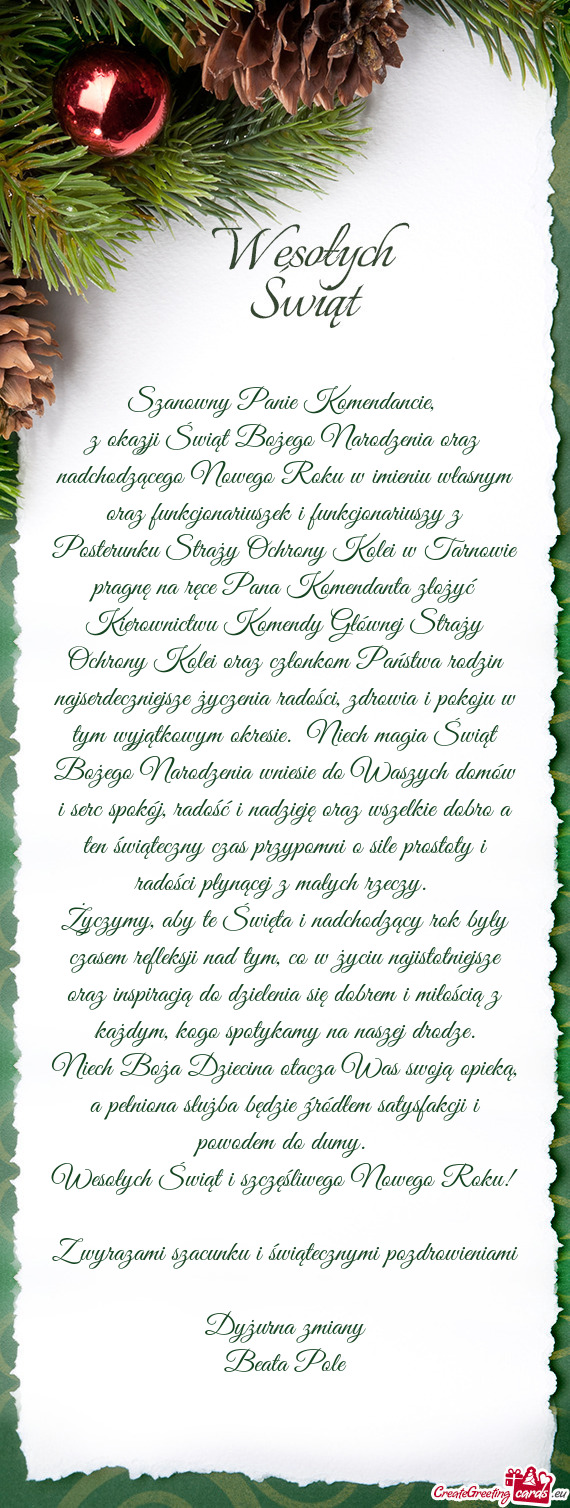 Wesołych
Świąt
Szanowny Panie Komendancie,
z okazji Świąt Bożego Narodzenia oraz
nadchodzącego Nowego Roku w imieniu własnym
oraz funkcjonariuszek i funkcjonariuszy z
Posterunku Straży Ochrony Kolei w Tarnowie
pragnę na ręce Pana Komendanta złożyć
Kierownictwu Komendy Głównej Straży
Ochrony Kolei oraz członkom Państwa rodzin
najserdeczniejsze życzenia radości, zdrowia i pokoju w
tym wyjątkowym okresie. Niech magia Świąt
Bożego Narodzenia wniesie do Waszych domów
i serc spokój, radość i nadzieję oraz wszelkie dobro a
ten świąteczny czas przypomni o sile prostoty i
radości płynącej z małych rzeczy.
Życzymy, aby te Święta i nadchodzący rok były
czasem refleksji nad tym, co w życiu najistotniejsze
oraz inspiracją do dzielenia się dobrem i miłością z
każdym, kogo spotykamy na naszej drodze.
Niech Boża Dziecina otacza Was swoją opieką,
a pełniona służba będzie źródłem satysfakcji i
powodem do dumy.
Wesołych Świąt i szczęśliwego Nowego Roku!
Z wyrazami szacunku i świątecznymi pozdrowieniami
Dyżurna zmiany
Beata Pole
CreateGreetingcards.eu